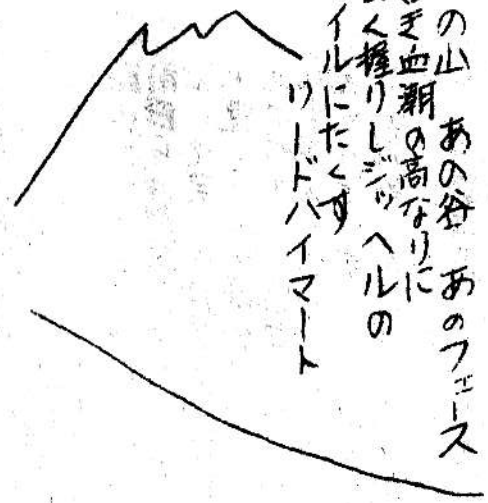 の山 あの谷 あのフェース
き血潮の高なりに
く握りしジッヘルの
イルにたくす
リードハイマート